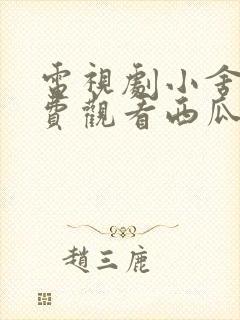 電視劇小舍
費觀看西瓜
趙三鹿